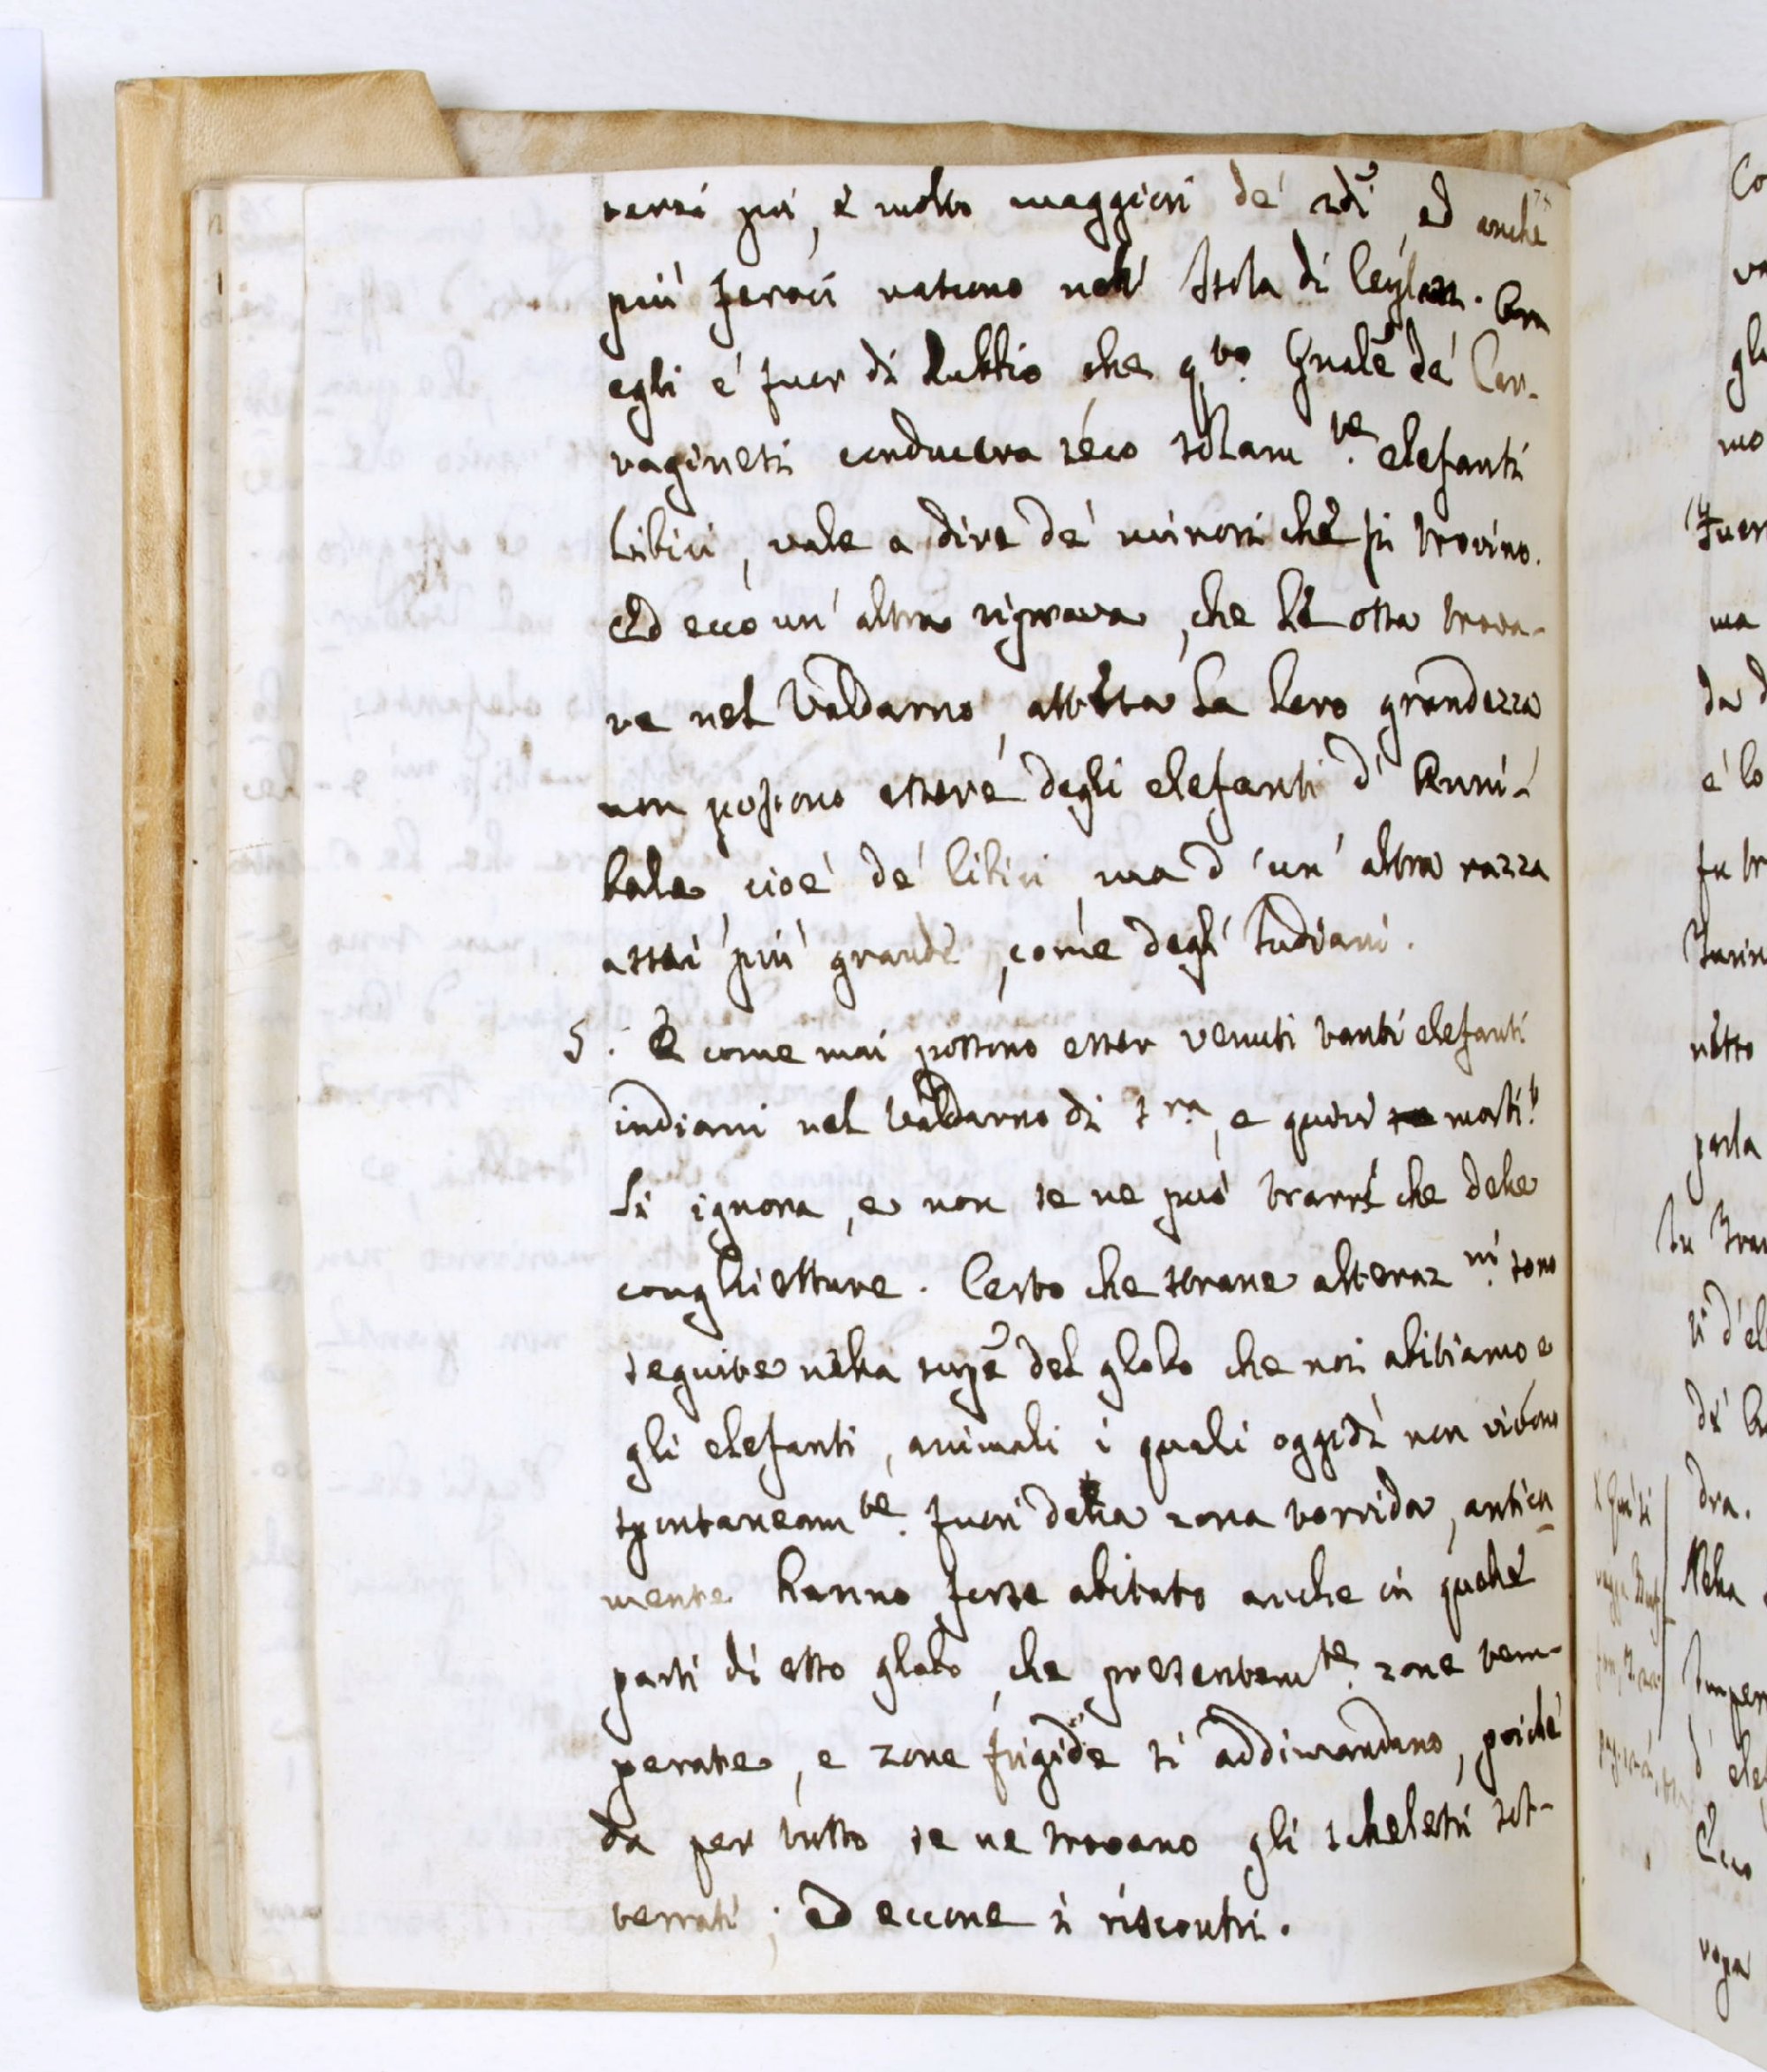 poi, e molto maggiori de' sdi, ed anche
più feroci nascono nell' Isola di Ceylan. Ora
egli è fuor di dubbio che q.to Gnale de' Car-
taginesi conduceva seco solam.te elefanti
Libici, vale a dire de' minori che si trovino.
Ed ecco un' altra riprova, che le ossa trova-
te nel Valdarno, attesa la loro grandezza
non possono essere degli elefanti d' Anni-
bale cioè de' libici, ma d' un' altra razza
assai più grande, come degl' Indiani.
5. E come mai possono esser venuti tanti elefanti
indiani nel Valdarno di s.ra, e quivi morti?
Si ignora, e non se ne può trarre che delle
conghietture. Certo che strane alteraz.ni sono
seguite nella supe del globo che noi abitiamo, e
gli elefanti, animali i quali oggidì non vivono
spontaneam.te fuori della zona torrida, antica
mente hanno forse abitato anche in quelle
parti di esso globo, che presentem.te zone tem-
perate, e zone frigide si addimandano, poichè
da per tutto se ne trovano gli scheletri sot-
terrati; ed eccone i riscontri.